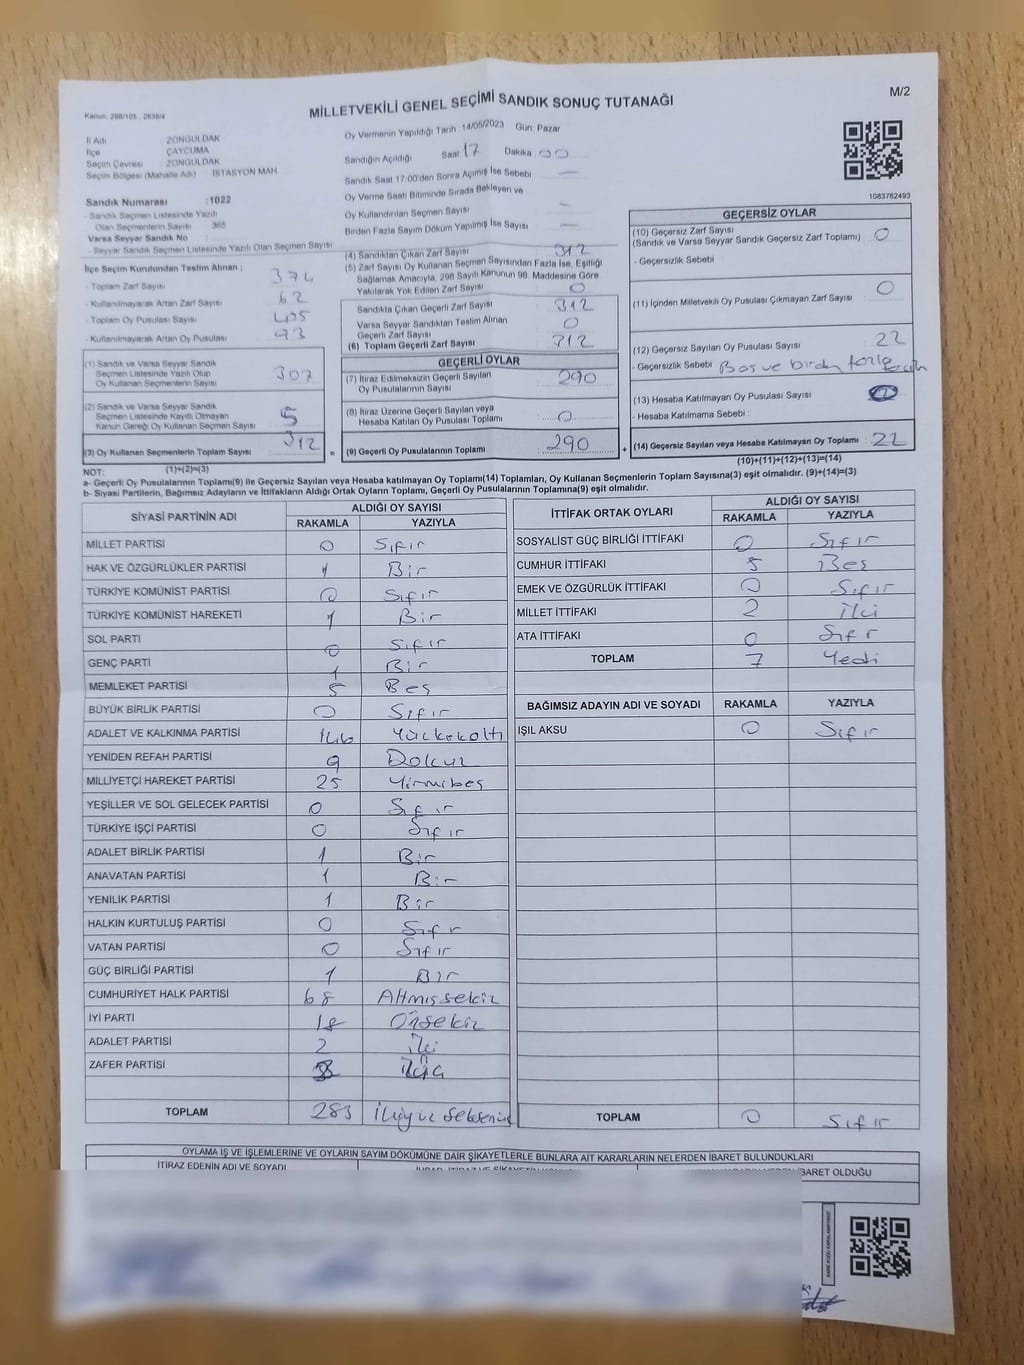 M/2
Kanun: 298/105 . 2839/4
MİLLETVEKİLİ GENEL SEÇİMİ SANDIK SONUÇ TUTANAĞI
İl Adı : ZONGULDAK
İlçe : ÇAYCUMA
Seçim Çevresi : ZONGULDAK
Seçim Bölgesi (Mahalle Adı) : İSTASYON MAH.
Sandık Numarası : 1022
- Sandık Seçmen Listesinde Yazılı
Olan Seçmenlerin Sayısı : 365
Varsa Seyyar Sandık No :
- Seyyar Sandık Seçmen Listesinde Yazılı Olan Seçmen Sayısı :
İlçe Seçim Kurulundan Teslim Alınan ;
- Toplam Zarf Sayısı : 374
- Kullanılmayarak Artan Zarf Sayısı : 62
- Toplam Oy Pusulası Sayısı : 405
- Kullanılmayarak Artan Oy Pusulası : 93
(1) Sandık ve Varsa Seyyar Sandık
Seçmen Listesinde Yazılı Olup
Oy Kullanan Seçmenlerin Sayısı : 307
(2) Sandık ve Varsa Seyyar Sandık
Seçmen Listesinde Kayıtlı Olmayan
Kanun Gereği Oy Kullanan Seçmen Sayısı : 5
(3) Oy Kullanan Seçmenlerin Toplam Sayısı : 312
(1)+(2)=(3)
Oy Vermenin Yapıldığı Tarih :14/05/2023 Gün: Pazar
Sandığın Açıldığı Saat 17 Dakika 00
Sandık Saat 17:00'den Sonra Açımış İse Sebebi : —
Oy Verme Saati Bitiminde Sırada Bekleyen ve
Oy Kullandırılan Seçmen Sayısı : —
Birden Fazla Sayım Döküm Yapılmış İse Sayısı : —
(4) Sandıktan Çıkan Zarf Sayısı : 312
(5) Zarf Sayısı Oy Kullanan Seçmen Sayısından Fazla İse, Eşitliği
Sağlamak Amacıyla, 298 Sayılı Kanunun 98. Maddesine Göre
Yakılarak Yok Edilen Zarf Sayısı : 0
Sandıkta Çıkan Geçerli Zarf Sayısı : 312
Varsa Seyyar Sandıktan Teslim Alınan
Geçerli Zarf Sayısı : 0
(6) Toplam Geçerli Zarf Sayısı : 312
GEÇERLİ OYLAR
(7) İtiraz Edilmeksizin Geçerli Sayılan
Oy Pusulalarının Sayısı : 290
(8) İtiraz Üzerine Geçerli Sayılan veya
Hesaba Katılan Oy Pusulası Toplamı : 0
(9) Geçerli Oy Pusulalarının Toplamı : 290
1083762493
GEÇERSİZ OYLAR
(10) Geçersiz Zarf Sayısı : 0
(Sandık ve Varsa Seyyar Sandık Geçersiz Zarf Toplamı)
- Geçersizlik Sebebi :
(11) İçinden Milletvekili Oy Pusulası Çıkmayan Zarf Sayısı : 0
(12) Geçersiz Sayılan Oy Pusulası Sayısı : 22
- Geçersizlik Sebebi : Boş ve birden fazla tercih
(13) Hesaba Katılmayan Oy Pusulası Sayısı :
- Hesaba Katılmama Sebebi :
(14) Geçersiz Sayılan veya Hesaba Katılmayan Oy Toplamı : 22
(10)+(11)+(12)+(13)=(14)
NOT:
a- Geçerli Oy Pusulalarının Toplamı(9) ile Geçersiz Sayılan veya Hesaba katılmayan Oy Toplamı(14) Toplamları, Oy Kullanan Seçmenlerin Toplam Sayısına(3) eşit olmalıdır. (9)+(14)=(3)
b- Siyasi Partilerin, Bağımsız Adayların ve İttifakların Aldığı Ortak Oyların Toplamı, Geçerli Oy Pusulalarının Toplamına(9) eşit olmalıdır.
SİYASİ PARTİNİN ADI ALDIĞI OY SAYISI
RAKAMLA YAZIYLA
MİLLET PARTİSİ 0 Sıfır
HAK VE ÖZGÜRLÜKLER PARTİSİ 1 Bir
TÜRKİYE KOMÜNİST PARTİSİ 0 Sıfır
TÜRKİYE KOMÜNİST HAREKETİ 1 Bir
SOL PARTİ 0 Sıfır
GENÇ PARTİ 1 Bir
MEMLEKET PARTİSİ 5 Beş
BÜYÜK BİRLİK PARTİSİ 0 Sıfır
ADALET VE KALKINMA PARTİSİ 146 Yüzkırkaltı
YENİDEN REFAH PARTİSİ 9 Dokuz
MİLLİYETÇİ HAREKET PARTİSİ 25 Yirmibeş
YEŞİLLER VE SOL GELECEK PARTİSİ 0 Sıfır
TÜRKİYE İŞÇİ PARTİSİ 0 Sıfır
ADALET BİRLİK PARTİSİ 1 Bir
ANAVATAN PARTİSİ 1 Bir
YENİLİK PARTİSİ 1 Bir
HALKIN KURTULUŞ PARTİSİ 0 Sıfır
VATAN PARTİSİ 0 Sıfır
GÜÇ BİRLİĞİ PARTİSİ 1 Bir
CUMHURİYET HALK PARTİSİ 68 Altmışsekiz
İYİ PARTİ 18 Onsekiz
ADALET PARTİSİ 2 İki
ZAFER PARTİSİ
TOPLAM 283 İkiyüz seksenüç
İTTİFAK ORTAK OYLARI ALDIĞI OY SAYISI
RAKAMLA YAZIYLA
SOSYALİST GÜÇ BİRLİĞİ İTTİFAKI 0 Sıfır
CUMHUR İTTİFAKI 5 Beş
EMEK VE ÖZGÜRLÜK İTTİFAKI 0 Sıfır
MİLLET İTTİFAKI 2 İki
ATA İTTİFAKI 0 Sıfır
TOPLAM 7 Yedi
BAĞIMSIZ ADAYIN ADI VE SOYADI RAKAMLA YAZIYLA
IŞIL AKSU 0 Sıfır
TOPLAM 0 Sıfır
OYLAMA İŞ VE İŞLEMLERİNE VE OYLARIN SAYIM DÖKÜMÜNE DAİR ŞİKAYETLERLE BUNLARA AİT KARARLARIN NELERDEN İBARET BULUNDUKLARI
İTİRAZ EDENİN ADI VE SOYADI
İBARET OLDUĞU